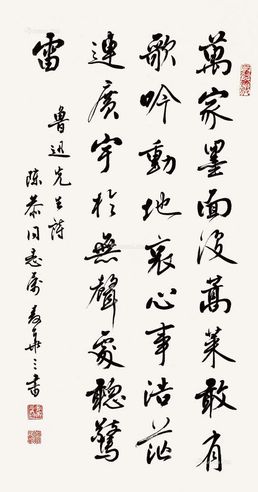 萬家墨面沒蒿萊敢有
歌吟動地哀心事浩茫
連廣宇於無聲處聽驚
雷
魯迅先生詩
陳恭同志屬